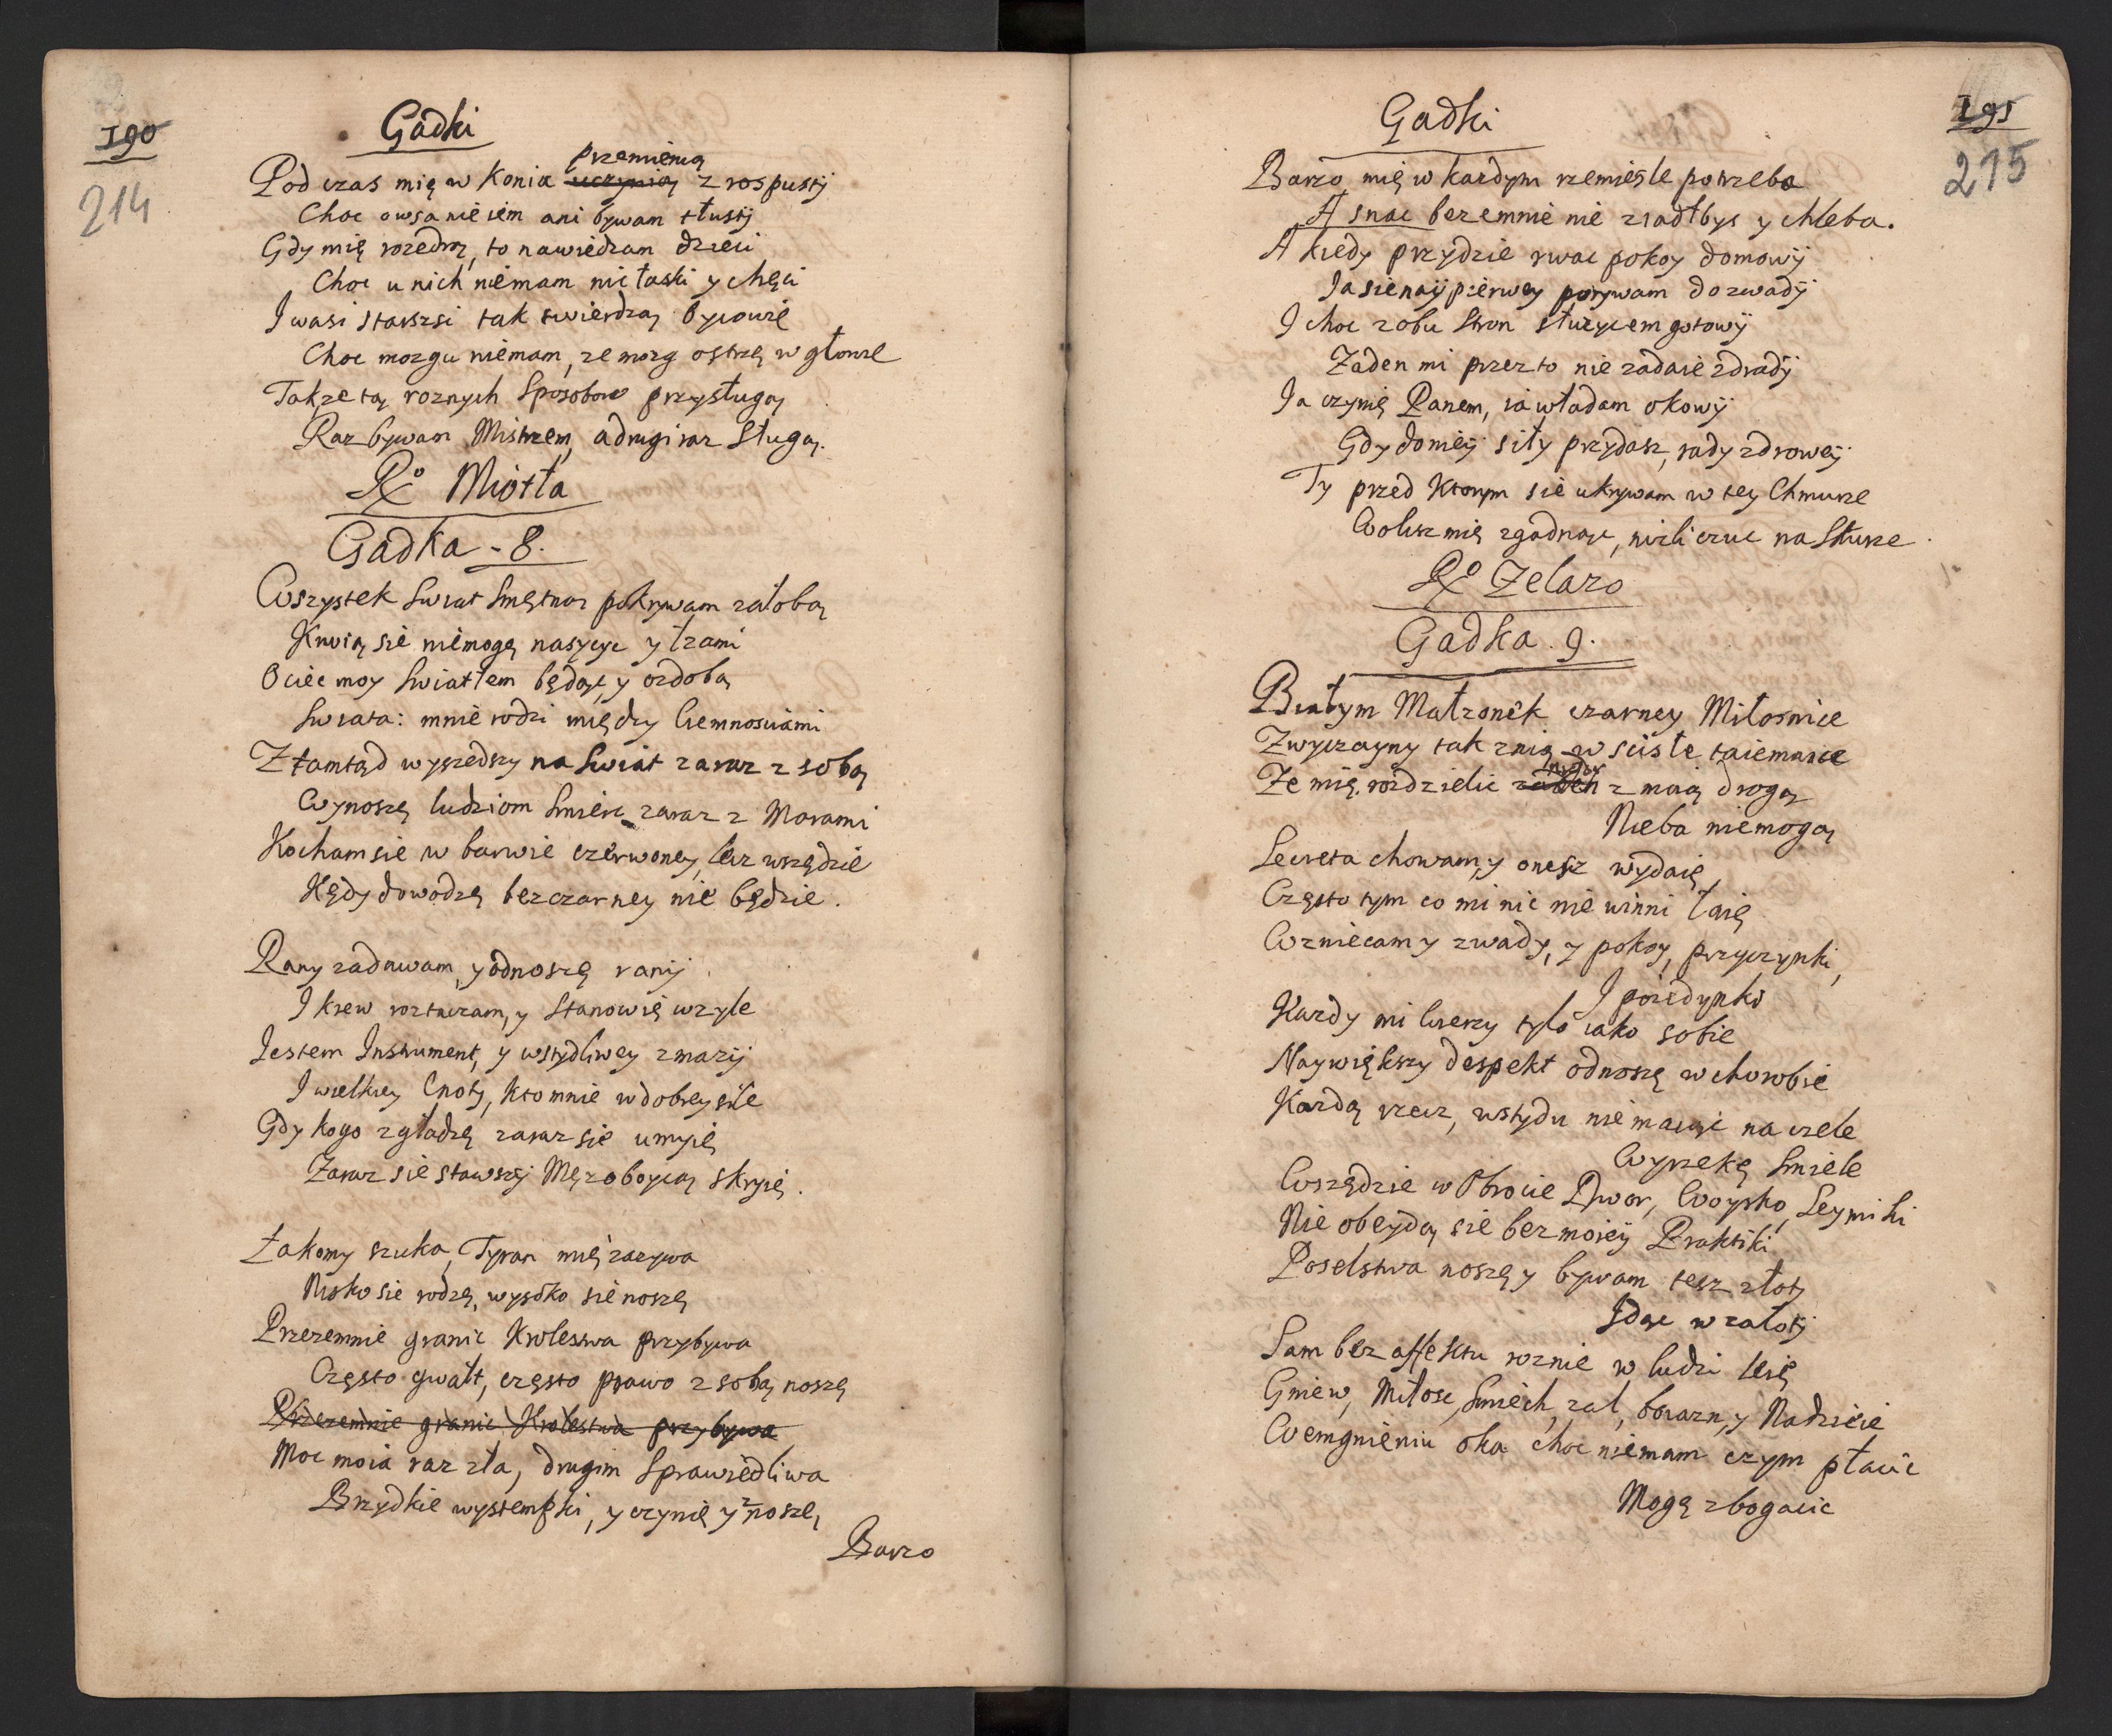 190
214
Gadki
przemienią
Pod czas mię w Konia uczynią z rospusty
Choc owsa nie iem ani bywam tłusty
Gdy mię rozedrą, to nawiedzam dzieci
Choc u nich niemam nic łaski y chęci
I wasi starszsi tak twierdzą bycowie
Choc mozgu niemam, ze mozg ostrzę w głowie
Takze tą roznych Sposobow przysługą
Raz bywam Mistrzem, a drugi raz Sługą.
Rx Miotła
Gadka - 8.
Wszystek Swiat Smętną pokrywam załobą
Krwią sie niemogę nasycyc y łzami
Ociec moy Swiatłem będąc y ozdobą
Swiata: mnie rodzi między Ciemnosciami
Z tamtąd wyszedszy na Swiat zaraz z sobą
Wynoszę ludziom Smierc zaraz z Marami
Kocham sie w barwie czerwoney, lecz wszędzie
Kędy dowodzę bez czarney nie będzie.
Rany zadawam, y odnoszę rany
I krew roztaczam, y Stanowię w zyle
Iestem Instrument, y wstydliwey zmazy
I wielkiey Cnoty, kto mnie w dobrey sile
Gdy kogo zgładzę zaraz sie umyię
Zaraz sie stawszy Męzoboycą skryię.
Łakomy szuka, Tyran mię zazywa
Nisko sie rodzę, wysoko sie noszę
Przezemnie granic Krolestwa przybywa
Często gwałt, często prawo z sobą noszę
Przezemnie granic Krolestwa przybywa
Moc moia raz zła, drugim Sprawiedliwa
Brzydkie wystempki, y czynię y znoszę,
Barzo
191
215
Gadki
Barzo mię w kazdym rzemięsle potrzeba
A snac bezemnie nie ziadłbys y chleba.
A kiedy przydzie rwac pokoy domowy
Ia sie nay pierwey porywam do zwady
I choc z obu Stron słuzyc em gotowy
Zaden mi przez to nie zadaie zdrady
Ia czynię Panem, ia władam okowy
Gdy do mey siły przydasz, rady zdrowey
Ty przed Ktorym sie ukrywam w tey Chmurze
Wolisz mię zgadnąc, nizli czuc na Skurze
Rx Zelazo
Gadka . 9.
Białym Małzonek czarney Miłosnice
Zwyczayny tak z nią w sciste taiemnice
Ze mię rozdzielic zaden z moią drogą
Nieba niemogą
Secreta chowam, y onesz wydaię
Często tym co mi nic nie winni łaię
Wzniecam y zwady, y pokoy, przyczynki,
I poiedynki
Kazdy mi wierzy tylo iako sobie
Naywiększy despekt odnoszę w chorobie
Kazdą rzecz, wstydu nie maiąc na czele
Wyrzekę Smiele
Wszędzie w Obrocie Dwor, Woysko, Seymiki
Nie obeydą sie bez moiey Praktiki
Poselstwa noszę y bywam tesz złoty
Idąc w zaloty
Sam bez affektu roznie w ludzi leię
Gniew, Miłosc, Smiech, zal, boiazn, y Nadzieie
W emgnieniu oka choc niemam czym płacic
Mogę zbogacic